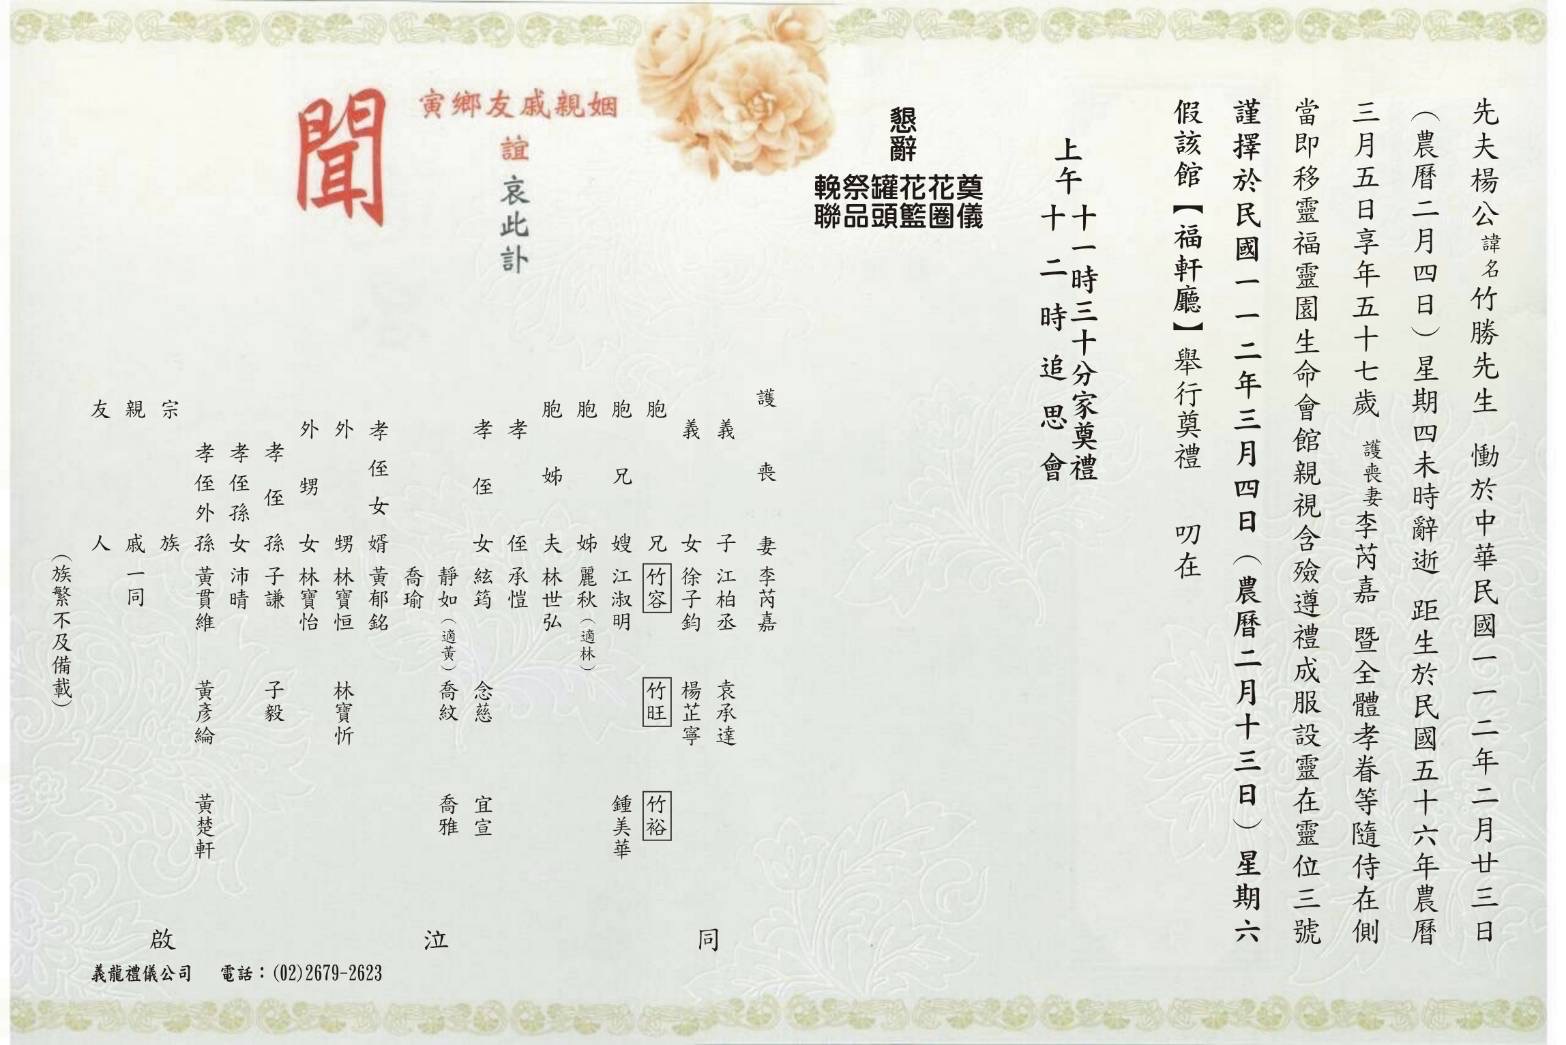 先夫楊公諱名竹勝先生 慟於中華民國一一二年二月廿三日
（農曆二月四日）星期四未時辭逝 距生於民國五十六年農曆
三月五日享年五十七歲 護喪妻李芮嘉 暨全體孝眷等隨侍在側
當即移靈福靈園生命會館親視含殮遵禮成服設靈在靈位三號
謹擇於民國一一二年三月四日（農曆二月十三日）星期六
假該館【福軒廳】舉行奠禮 叨在
上午 十一時三十分家奠禮
十二時追思會
懇辭
奠儀
花圈
花籃
罐頭
祭品
輓聯
姻親戚友鄉寅
誼 哀此訃
聞
護喪妻 李芮嘉
義子 江柏丞 袁承達
義女 徐子鈞 楊芷寧
胞兄 竹容 竹旺 竹裕
胞兄嫂 江淑明 鍾美華
胞姊 麗秋（適林）
胞姊夫 林世弘
孝侄 承愷
孝侄女 絃筠 念慈 宜宣
靜如（適黃） 喬紋 喬雅
喬瑜
孝侄女婿 黃郁銘
外甥 林寶恒 林寶忻
外甥女 林寶怡
孝侄孫 子謙 子毅
孝侄孫女 沛晴
孝侄外孫 黃貫維 黃彥綸 黃楚軒
宗族
親戚一同
友人
（族繁不及備載）
同 泣 啟
義龍禮儀公司 電話：(02)2679-2623